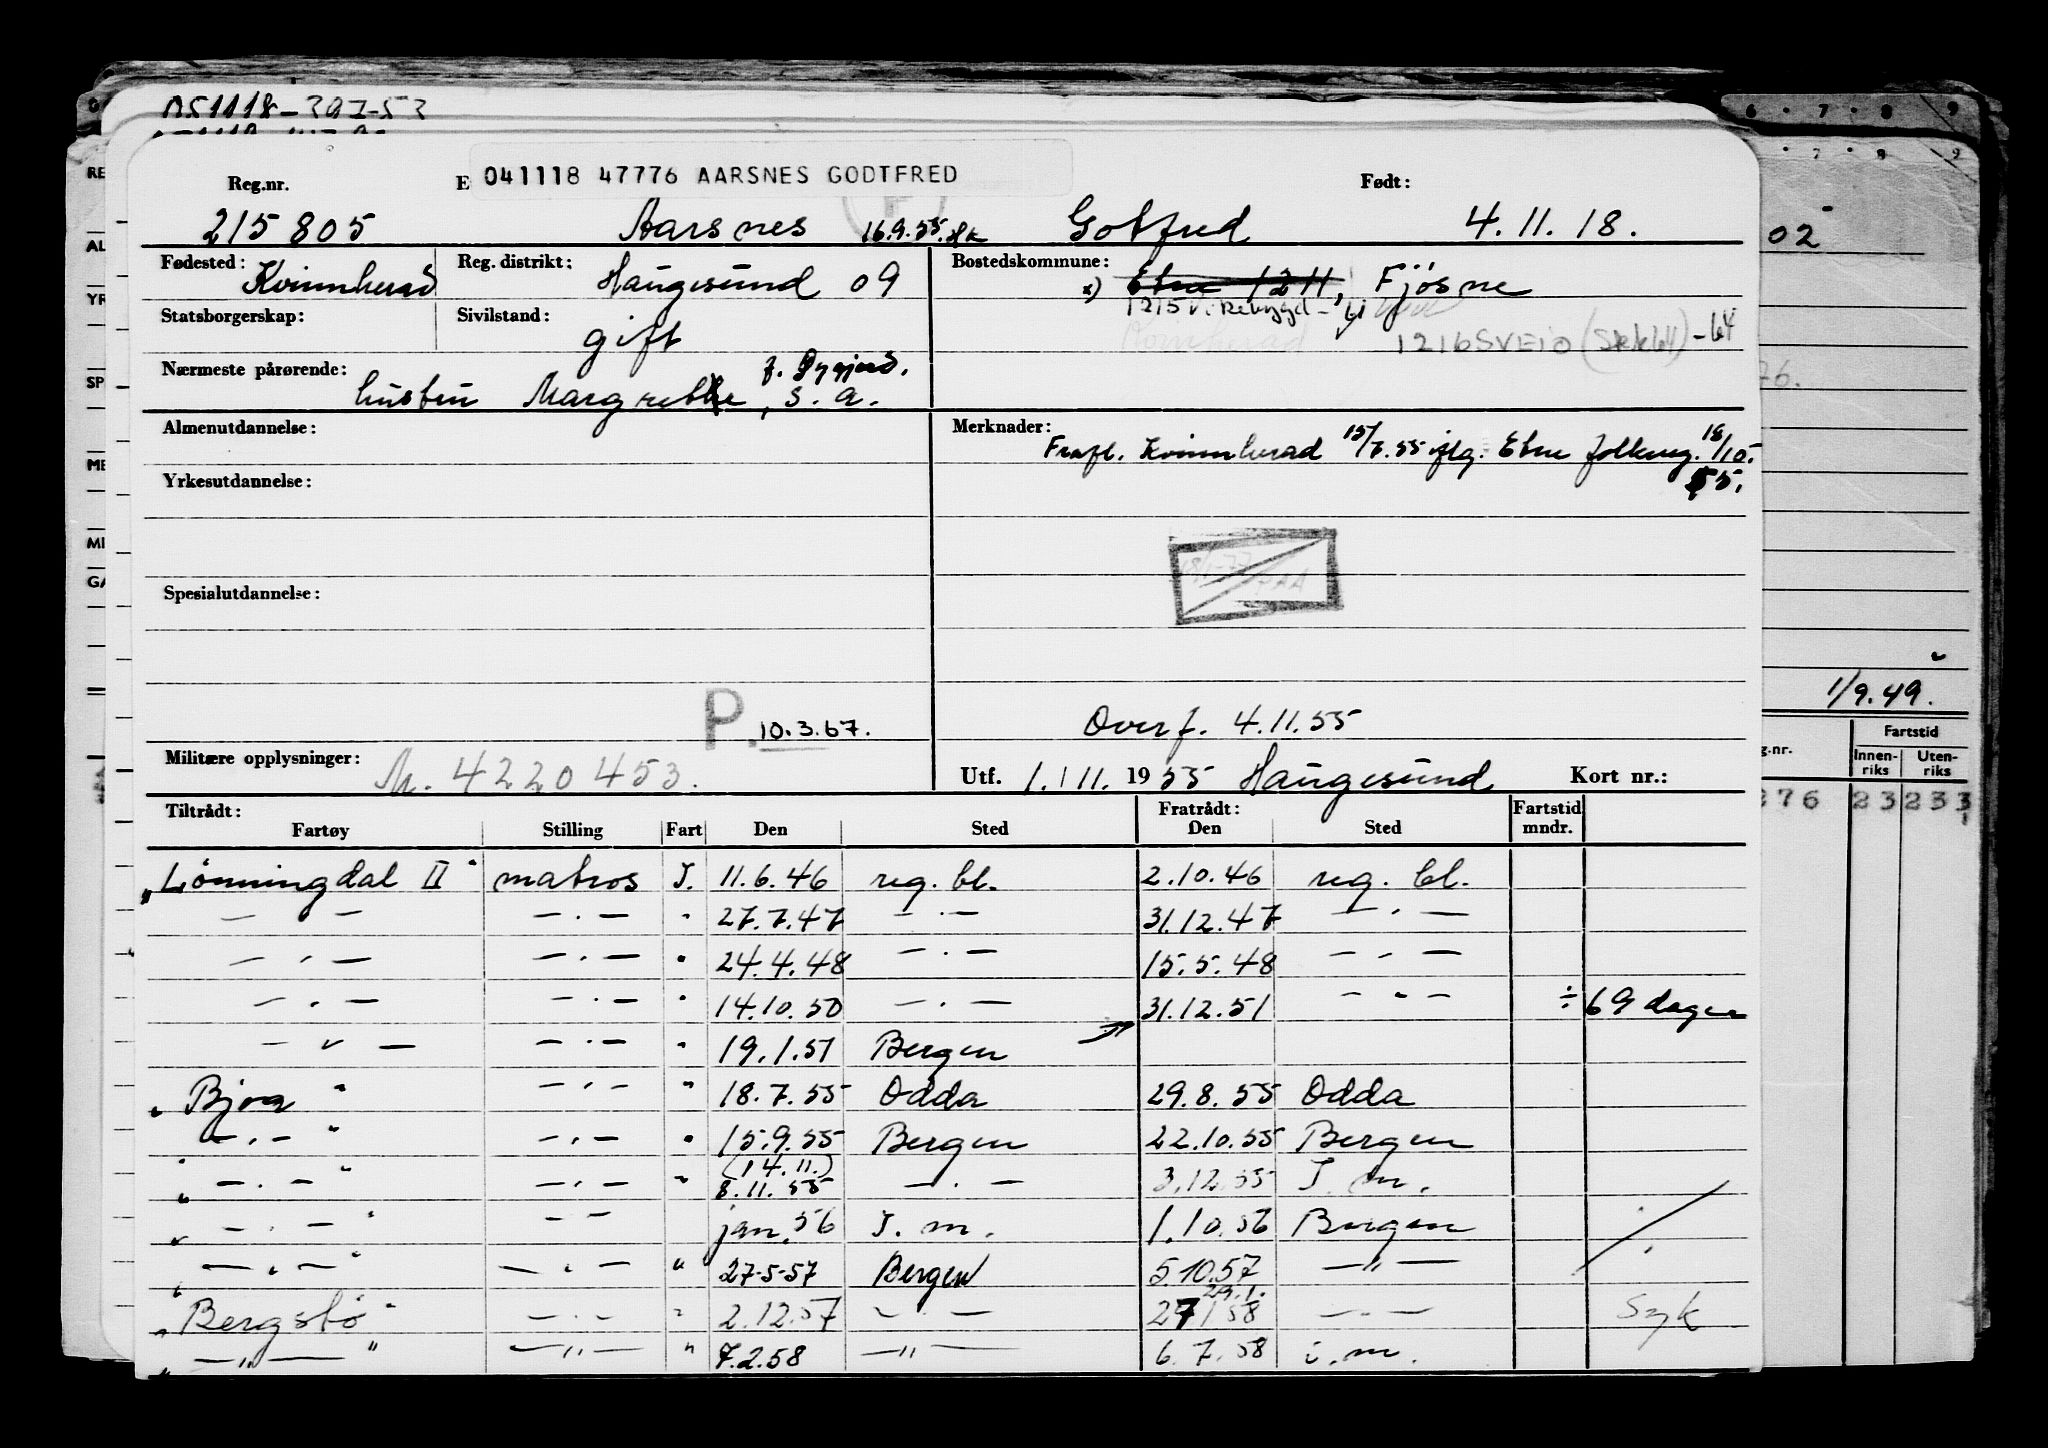 Reg.nr. E 041118 47776 AARSNES GODTFRED Født:
215805 Aarsnes 16.9.55. Gotfred 4.11.18.
Fødested: Kvinnherad Reg. distrikt: Haugesund 09 Bostedskommune: x) Etne 1211, Fjøsne
1215 Vikebygd - 61
Statsborgerskap: Sivilstand: gift Kvinnherad 1216 SVEIO (Skk64) - 64
Nærmeste pårørende: hustru Margrethe, s. a.
Almenutdannelse: Merknader: Frafl. Kvinnherad 15/7.55 iflg. Etne folkereg. 18/10.
55.
Yrkesutdannelse:
Spesialutdannelse:
1/9.49.
P. 10.3.67. Overf. 4.11.55
Militære opplysninger: M. 4220453. Utf. 1. 11. 1955 Haugesund Kort nr.:
Tiltrådt: Fratrådt: Fartstid
Fartøy Stilling Fart Den Sted Den Sted mndr.
"Lønningdal II" matros I. 11.6.46 reg. bl. 2.10.46 reg. bl.
— " — — . — " 27.7.47 — . — 31.12.47 — " —
— " — — . — " 24.4.48 — . — 15.5.48 — " —
— " — — . — " 14.10.50 — . — 31.12.51 — " — ÷ 69 dager
— " — — . — " 19.1.51 Bergen
"Bjoa" — . — " 18.7.55 Odda 29.8.55 Odda
— . — " — . — " 15.9.55 Bergen 22.10.55 Bergen
(14.11.)
" — . — " — . — " 8.11.55 — . — 3.12.55 I. m.
" — . — " — " — jan. 56 I. m. 1.10.56 Bergen
" — . — " — . — " 27-5-57 Bergen 5.10.57 — " —
29.1.
"Bergstø" — . — " 2.12.57 — . — 27 1 58 — . — Syk
" — " — " — " — " 7.2.58 — " — 6.7.58 i. m.
Fartstid
Innen-riks Uten-riks
276 23 233